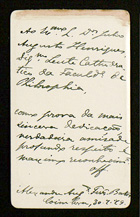 Ao Ill.mo S.r Dr. Julio
Augusto Henriques
Dig.mo Lente Cathedra
tico da Faculd.e de
Philosophia.
Como prova da mais
sincera dedicação,
verdadeira amisade,
profundo respeito e
maximo reconhecim.to
off.
Alexandre Aug.
Coimbra, 30-7-